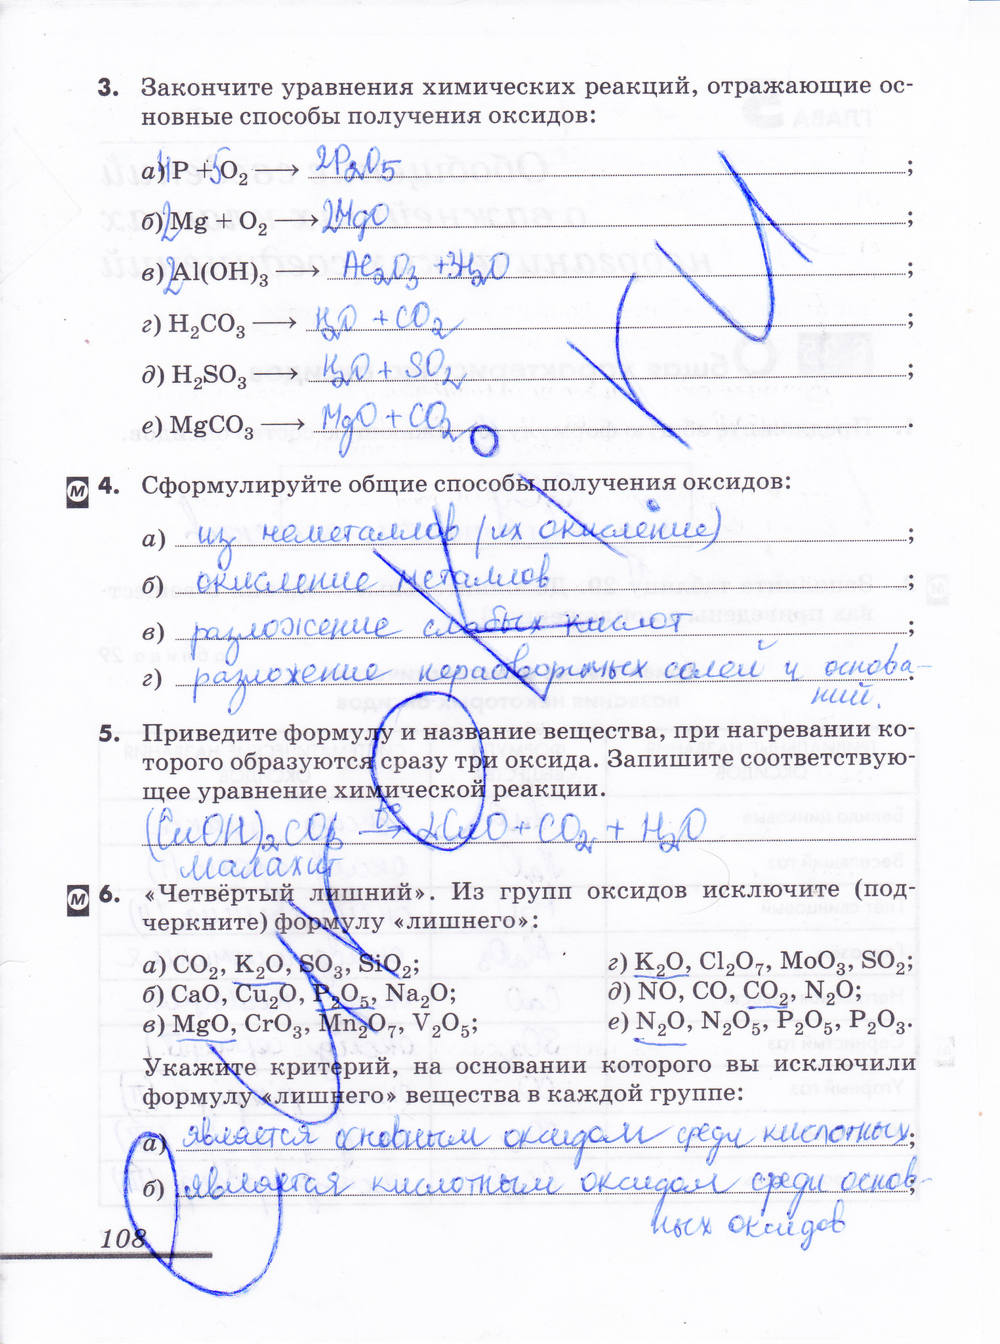 3. Закончите уравнения химических реакций, отражающие ос-
новные способы получения оксидов:
а) 4P + 5O₂ ⟶ 2P₂O₅ ;
б) 2Mg + O₂ ⟶ 2MgO ;
в) 2Al(OH)₃ ⟶ Al₂O₃ + 3H₂O ;
г) H₂CO₃ ⟶ H₂O + CO₂ ;
д) H₂SO₃ ⟶ H₂O + SO₂ ;
е) MgCO₃ ⟶ MgO + CO₂ .
М 4. Сформулируйте общие способы получения оксидов:
а) из неметаллов (их окисление) ;
б) окисление металлов ;
в) разложение слабых кислот ;
г) разложение нерастворимых солей и основа- .
ний.
5. Приведите формулу и название вещества, при нагревании ко-
торого образуются сразу три оксида. Запишите соответствую-
щее уравнение химической реакции.
(CuOH)₂CO₃ t°⟶ 2CuO + CO₂ + H₂O
малахит
М 6. «Четвёртый лишний». Из групп оксидов исключите (под-
черкните) формулу «лишнего»:
а) CO₂, K₂O, SO₃, SiO₂; г) K₂O, Cl₂O₇, MoO₃, SO₂;
б) CaO, Cu₂O, P₂O₅, Na₂O; д) NO, CO, CO₂, N₂O;
в) MgO, CrO₃, Mn₂O₇, V₂O₅; е) N₂O, N₂O₅, P₂O₅, P₂O₃.
Укажите критерий, на основании которого вы исключили
формулу «лишнего» вещества в каждой группе:
а) является основным оксидом среди кислотных ;
б) является кислотным оксидом среди основ- ;
ных оксидов
108